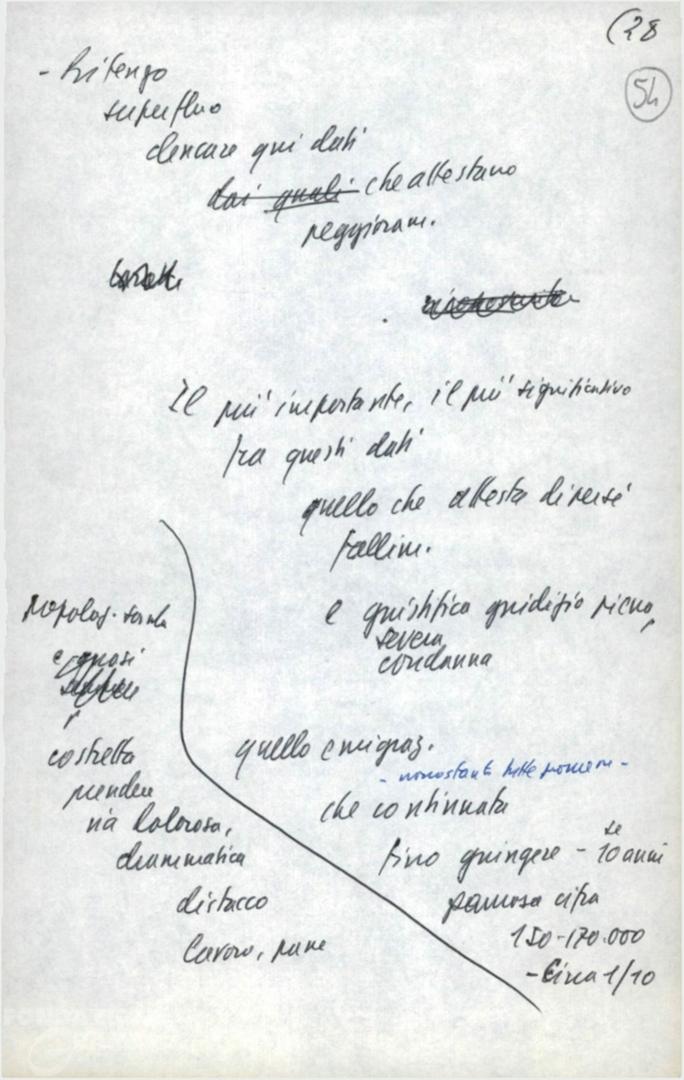 (28
54
- Ritengo
superfluo
elencare qui dati
dai quali che attestano
peggioram.
Il più importante, il più significativo
fra questi dati
quello che attesta di per sé
fallim.
e giustifica giudizio
severa
condanna
quello emigraz.
- nonostante tutte
che continuata
fino giungere - 10 anni
se
paurosa cifra
150-170.000
- Circa 1/10
popolaz. sarda
e quasi
costretta
prendere
via dolorosa,
drammatica
distacco
lavoro, pane